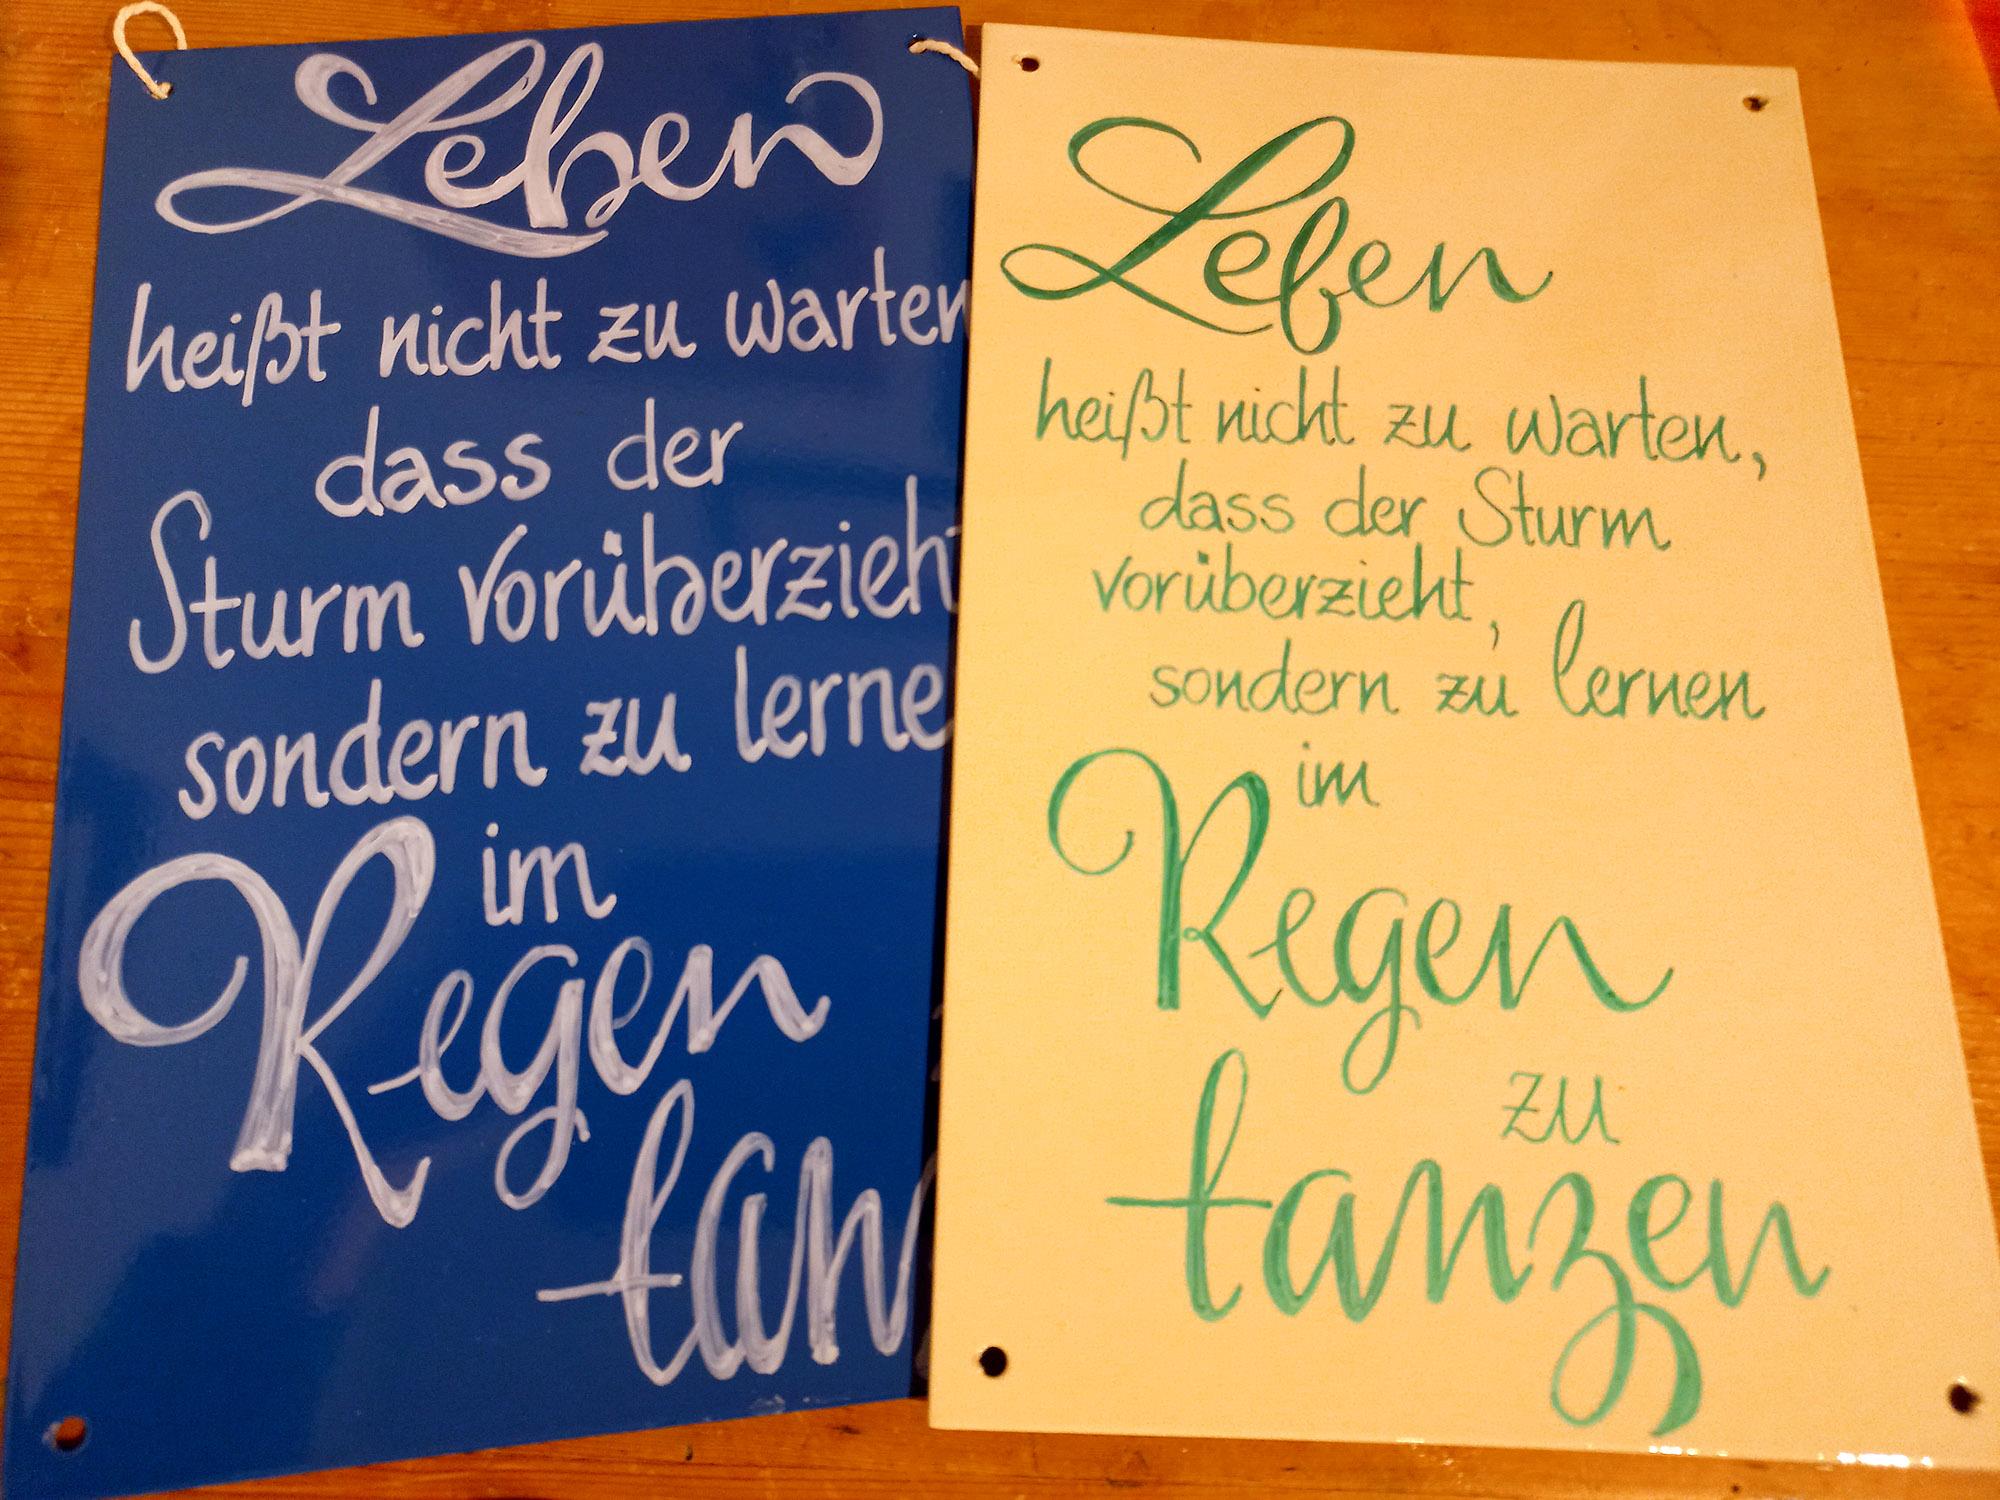 Leben
heißt nicht zu warten
dass der
Sturm vorüberzieht
sondern zu lerne
im
Regen
tan
Leben
heißt nicht zu warten,
dass der Sturm
vorüberzieht,
sondern zu lernen
im
Regen
zu
tanzen